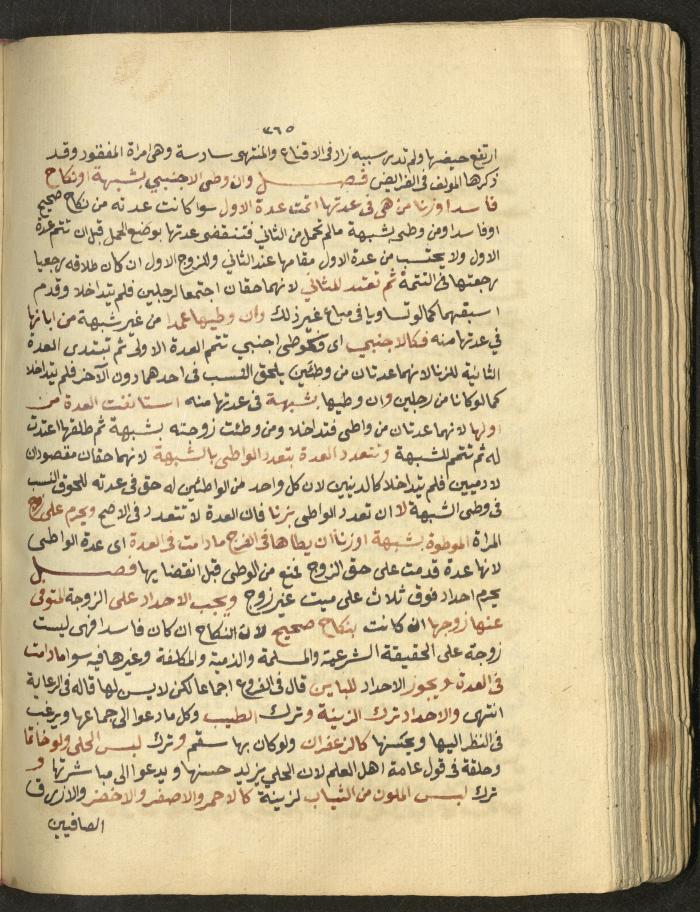 ٣٦٥
ارتفع حيضها ولم تدر سببه زاد في الاقناع والمنتهى سادسة وهي امراة المفقود وقد
ذكرها المؤلف في الفرايض فصل وان وطى الاجنبي بشبهة او نكاح
فاسد او زنا من هي في عدتها اتمت عدة الاول سوا كانت عدته من نكاح صحيح
او فاسد او من وطى بشبهة مالم تحمل من الثاني فتنقضى عدتها بوضع الحمل قبل ان تتم عدة
الاول ولا يحتسب من عدة الاول مقامها عند الثاني وللزوج الاول ان كان طلاقه رجعيا
رجعتها في التتمة ثم تعتد للثاني لانهما حقان اجتمعا لرجلين فلم يتداخلا وقدم
اسبقهما كما لو تساويا في مباع غير ذلك وان وطيها عمدا من غير شبهة من ابانها
في عدتها منه فكالاجنبي اى فكوطى اجنبي تتمم العدة الاولى ثم تبتدى العدة
الثانية للزنا لانهما عدتان من وطئين يلحق النسب في احدهما دون الآخر فلم يتداخلا
كما لو كانا من رجلين وان وطيها بشبهة في عدتها منه استانفت العدة من
اولها لانهما عدتان من واطى فتداخلا ومن وطئت زوجته بشبهة ثم طلقها اعتدت
له ثم تتمم للشبهة وتتعدد العدة بتعدد الواطى بالشبهة لانهما حقان مقصودان
لادميين فلم يتداخلا كالدينين لان كل واحد من الواطئين له حق في عدته للحوق النسب
في وطى الشبهة لا ان تعدد الواطى بزنا فان العدة لا تتعدد في الاصح ويحرم على زوج
المراة الموطوة بشبهة او زنا ان يطاها في الفرج ما دامت في العدة اى عدة الواطى
لانها عدة قدمت على حق الزوج فمنع من الوطى قبل انقضايها فصل
يحرم احداد فوق ثلاث على ميت غير زوج ويجب الاحداد على الزوجة المتوفى
عنها زوجها ان كانت بنكاح صحيح لان النكاح ان كان فاسدا فهى ليست
زوجة على الحقيقة الشرعية والمسلمة والذمية والمكلفة وغيرها فيه سوا ما دامت
في العدة ويجوز الاحداد للباين قال في الفروع اجماعا لكن لا يسن لها قاله في الرعاية
انتهى والاحداد ترك الزينة وترك الطيب وكل ما دعوا الى جماعها ويرغب
في النظر اليها ويحسنها كالزعفران ولو كان بها سقم وترك لبس الحلي ولو خاتما
وحلقة في قول عامة اهل العلم لان الحلي يزيد حسنها ويدعوا الى مباشرتها و
ترك لبس الملون من الثياب لزينة كالاحمر والاصفر والاخضر والازرق
الصافيين